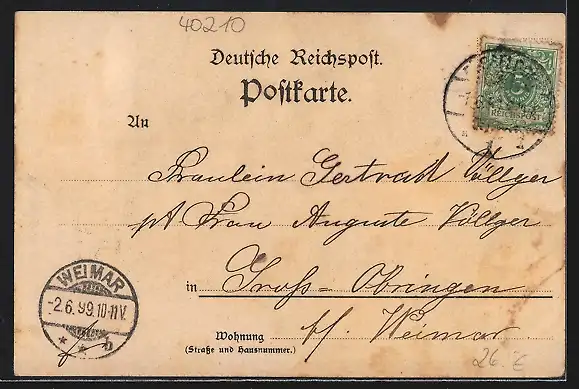 40210
Deutsche Reichspost.
Postkarte.
REICHSPOST
An
Fräulein Gertrud Völlger
pA Frau Auguste Völlger
in Gross-Obringen
Wohnung
(Straße und Hausnummer.)
b/ Weimar
WEIMAR
-2.6.99.10-11V.
* * b
26.€